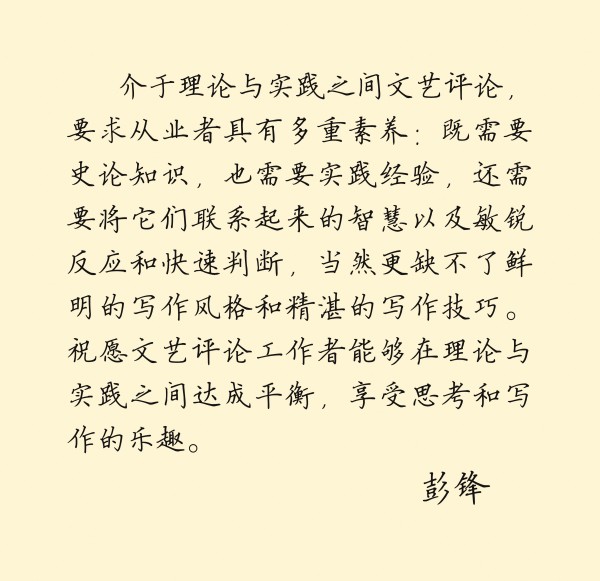 介于理论与实践之间文艺评论，
要求从业者具有多重素养：既需要
史论知识，也需要实践经验，还需
要将它们联系起来的智慧以及敏锐
反应和快速判断，当然更缺不了鲜
明的写作风格和精湛的写作技巧。
祝愿文艺评论工作者能够在理论与
实践之间达成平衡，享受思考和写
作的乐趣。
彭锋